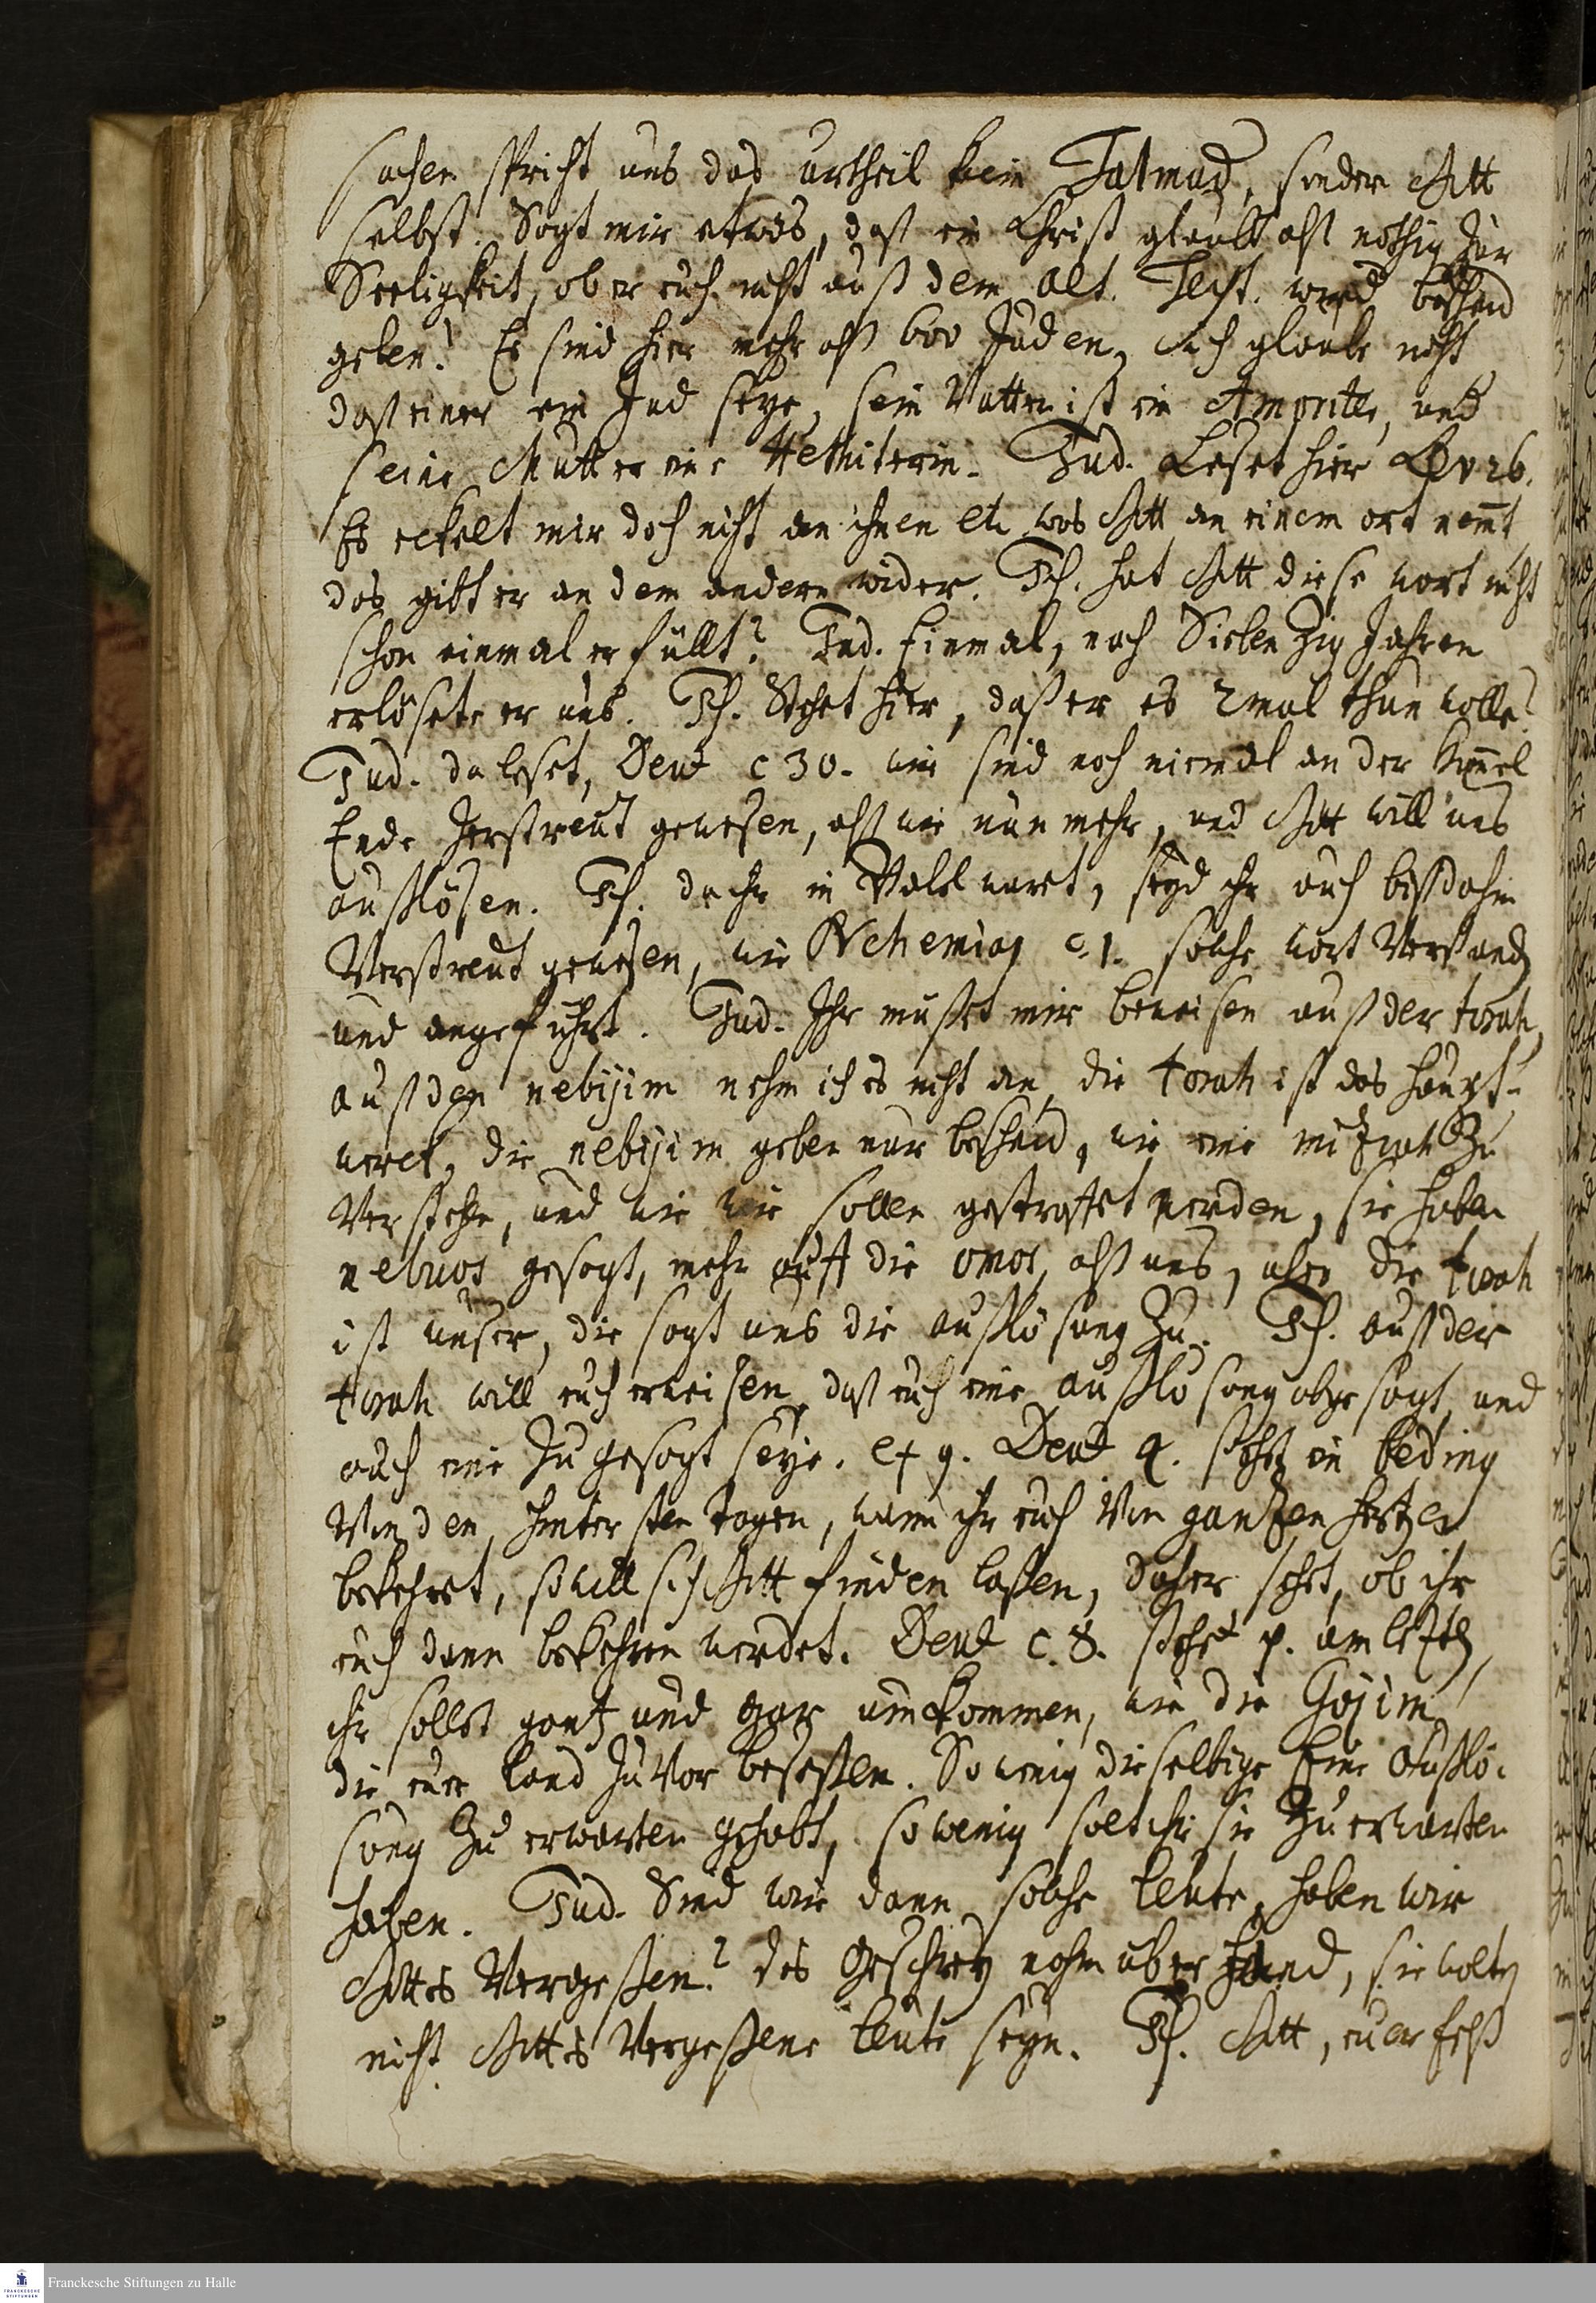 sachen spricht uns das urtheil kein Talmud, sonder Gott
selbst. Sagt mir etwas, daß ein Christ glaubt alß nöthig zur
Seeligkeit, ob er euch nicht auß dem alt. Test. werd bescheid
geben! Es sind hier mehr alß 600 Juden, Ich glaube nicht
daß einer ein Jud seye, sein Vatter ist ein Amoriter, und
seine Mutter eine Hethiterin. Jud. Leset hier Lev 26.
Es eckelt mir doch nicht an ihnen etc was Gott an einem ort nimt
das gibt er an dem andern wider. Ich. hat Gott diese wort nicht
schon einmal erfüllt? Jud. Einmal, nach Siebenzig Jahren
erlösete er uns. Ich. Stehet hier, daß er es 2mal thun wolle?
Jud. da leset, Deut c 30. wir sind noch niemal an der himel
Ende zerstreut gewesen, alß wie nun mehr, und Gott will uns
außlösen. Ich. da ihr in Babel waret, seyd ihr auch bißdahin
Verstreut gewesen, wie Nehemias c. 1. solche wort Verstanden
und angeführt. Jud. Ihr müßet mir beweisen auß der torah,
auß den nebijim nehm ich es nicht an, die torah ist das haupt-
werck, die nebijim geben nur bescheid, wie eine mitzwah Zu
Verstehen, und wie wir sollen gestraffet werden, sie haben
nebuos gesagt, mehr auff die omos, alß uns, aber die torah
ist unser, die sagt uns die außlösung Zu. Ich. auß der
torah will euch erweisen, daß euch eine außlösung abgesagt, und
auch eine Zugesagt seye. e. g. Deut 4. stehet ein beding
Von den hintersten tagen, wann ihr euch Von gantzen hertzen
bekehret, so will sich Gott finden laßen, Daher sehet, ob ihr
euch dann bekehren werdet. Deut c. 8. stehet p. am letsten,
ihr sollet gantz und gar umkommen, wie die Gojim,
die euer land zuvor beseßen. So wenig dieselbige Eine Außlö-
sung Zu erwarten gehabt, so wenig solt ihr sie Zu erwarten
haben. Jud. Sind wir dann solche leute, haben wir
Gottes Vergeßen? das Geschrey nahm überhand, sie wolten
nicht Gottes Vergeßene leute seyn. Ich. Gott, euer felß
Franckesche Stiftungen zu Halle